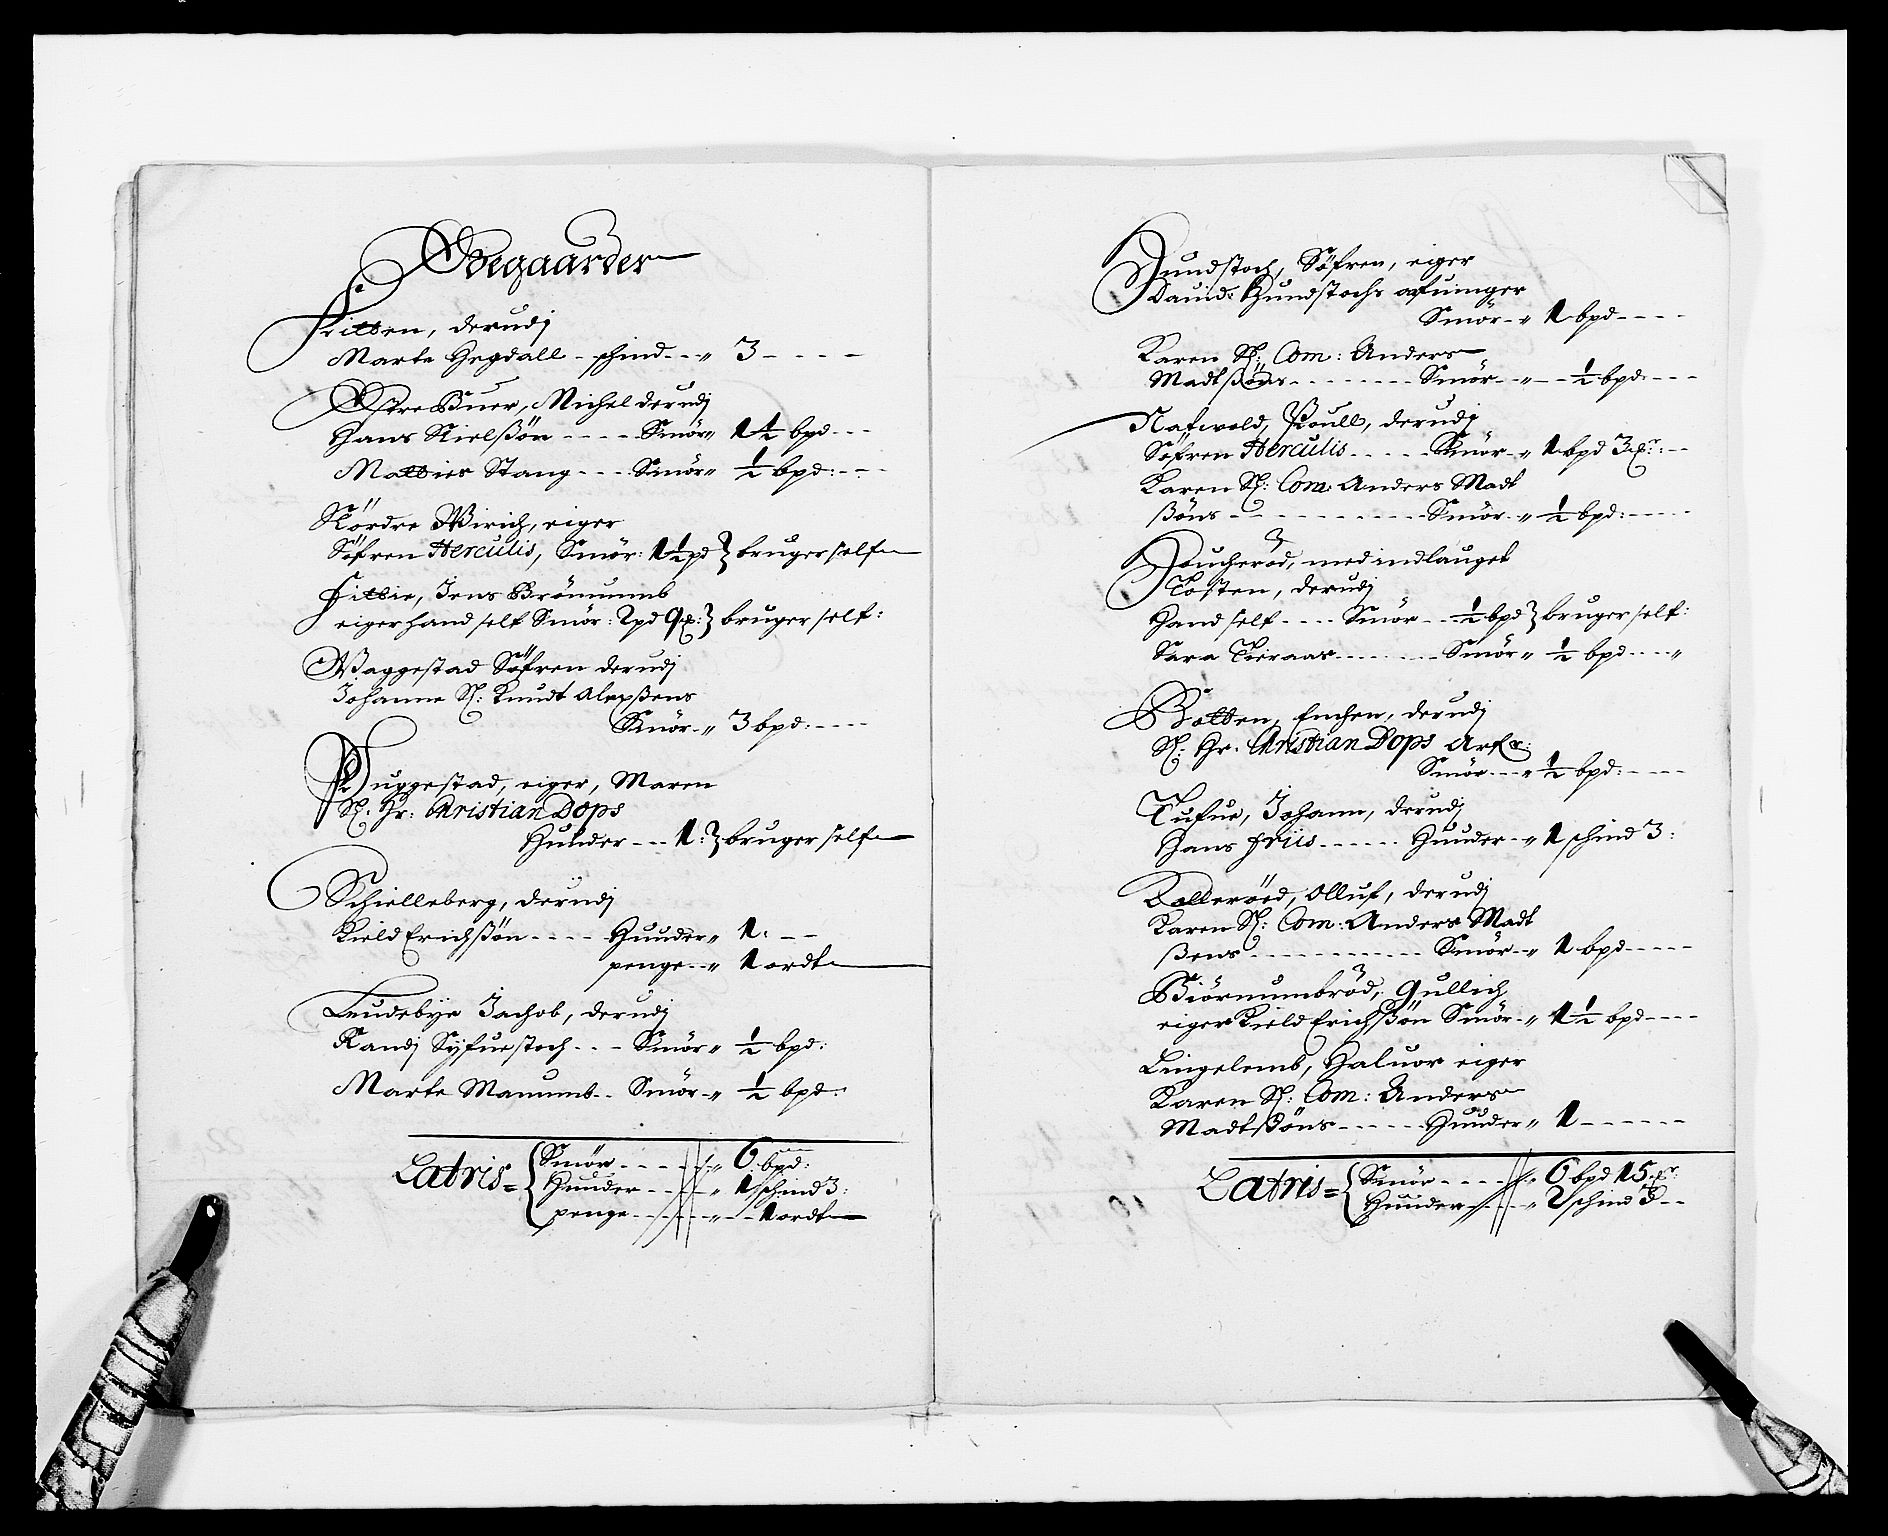 Ødegaarder
Kitten, derudj
Marte Hegdall - schind - - „ 3 - - - -
Østre Buer, Michel derudj
Hans Nielßøn - - - - Smør „ 1½ bpd - - -
Matties Stang - - - Smør „ ½ bpd: - - -
Nørdre Wirich, eiger
Søfren Herculis, Smør: 1½ pd } bruger self
Fittie, Jens Brømumb
eiger hand self Smør: 2 pd 9 } bruger self:
Waggestad Søfren derudj
Johanne Sl: Knudt Alexßens
Smør - „ 3 bpd: - - - -
Duggestad, eiger, Maren
Sl: Hr: Christian Dops
Huuder - - - 1: } bruger self
Schielleberg, derudj
Kield Erichßøn - - - - Huuder „ 1: - -
penge - - „ 1 ordt
Leudebye Jachob, derudj
Randj Syfuestoch - - - Smør „ ½ bpd:
Marte Manumb - - Smør - „ ½ bpd:
Latris = { Smør - - - - „ 6 bpd:
Huuder - - - „ 1 schind 3:
penge - - - - „ - - 1 ordt
Hundstoch, Søfren, eiger
Dauid Hundstochs arfuinger
Smør - - „ 1 bpd - - - -
Karen Sl: Com: Anders
Madtßøns - - - - - - - - Smør - - „ - - ½ bpd: - - -
Nafwold, Poull, derudj
Søfren Herculis - - - - - Smør - „ 1 bpd 3 - -
Karen Sl: Com: Anders Madt
ßøns - - - - - - - - - - - Smør - „ ½ bpd: - - - - -
Joucherød, med indlauget
Tosten, derudj
Hand self - - - - Smør - - - ½ bpd } bruger self:
Sara Tieraas - - - - - - - Smør „ ½ bpd - - - - „
Botten, Enchen, derudj
Sl: Hr: Christian Dops Arf
Smør - - - „ ½ bpd: - - - -
Tufue, Johann, derudj
Hans Friis - - - - - - Huuder - „ 1 schind 3:
Kollerøed, Olluf, derudj
Karen Sl: Com: Anders Madt
ßens - - - - - - - - - - - Smør - - „ 1 bpd - - - - -
Biørnumbrød, Gullich
eiger Kield Erichßøn Smør - „ 1½ bpd - - - -
Lingelemb, Haluor eiger
Karen Sl: Com: Anders
Madtßøns - - - - - Huuder „ 1 - - - - - -
Latris = { Smør - - - - „ 6 bpd 15
Huuder - - - - „ 2 schind 3 - -